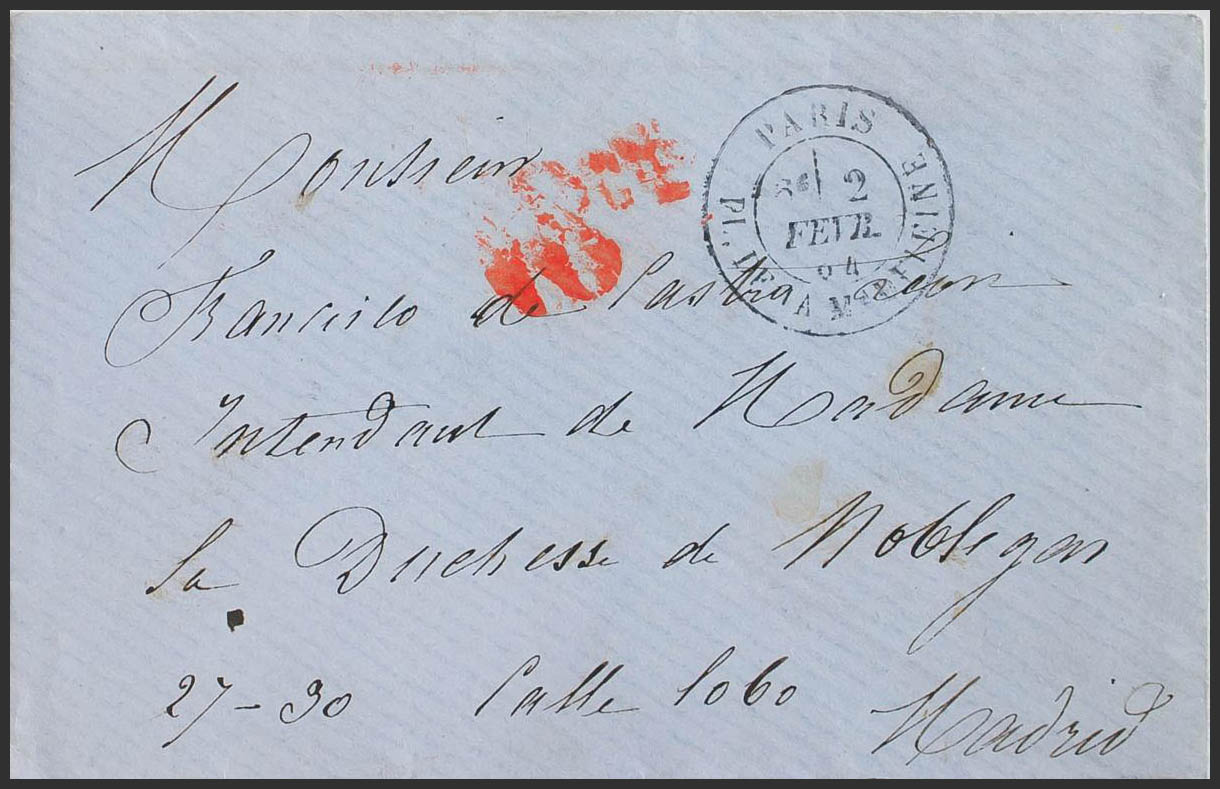 Monsieur
PARIS
PL. DE LA MADELEINE
2
FEVR.
Francisco de Castro
Intendant de Madame
la Duchesse de Noblejas
27-30 Calle Lobo
Madrid